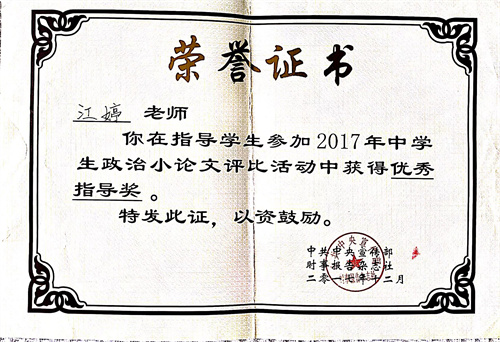 荣誉证书
江婷 老师
你在指导学生参加2017年中学
生政治小论文评比活动中获得优秀
指导奖。
特发此证，以资鼓励。
中共中央宣传部
时事报告杂志社
二零一七年十二月